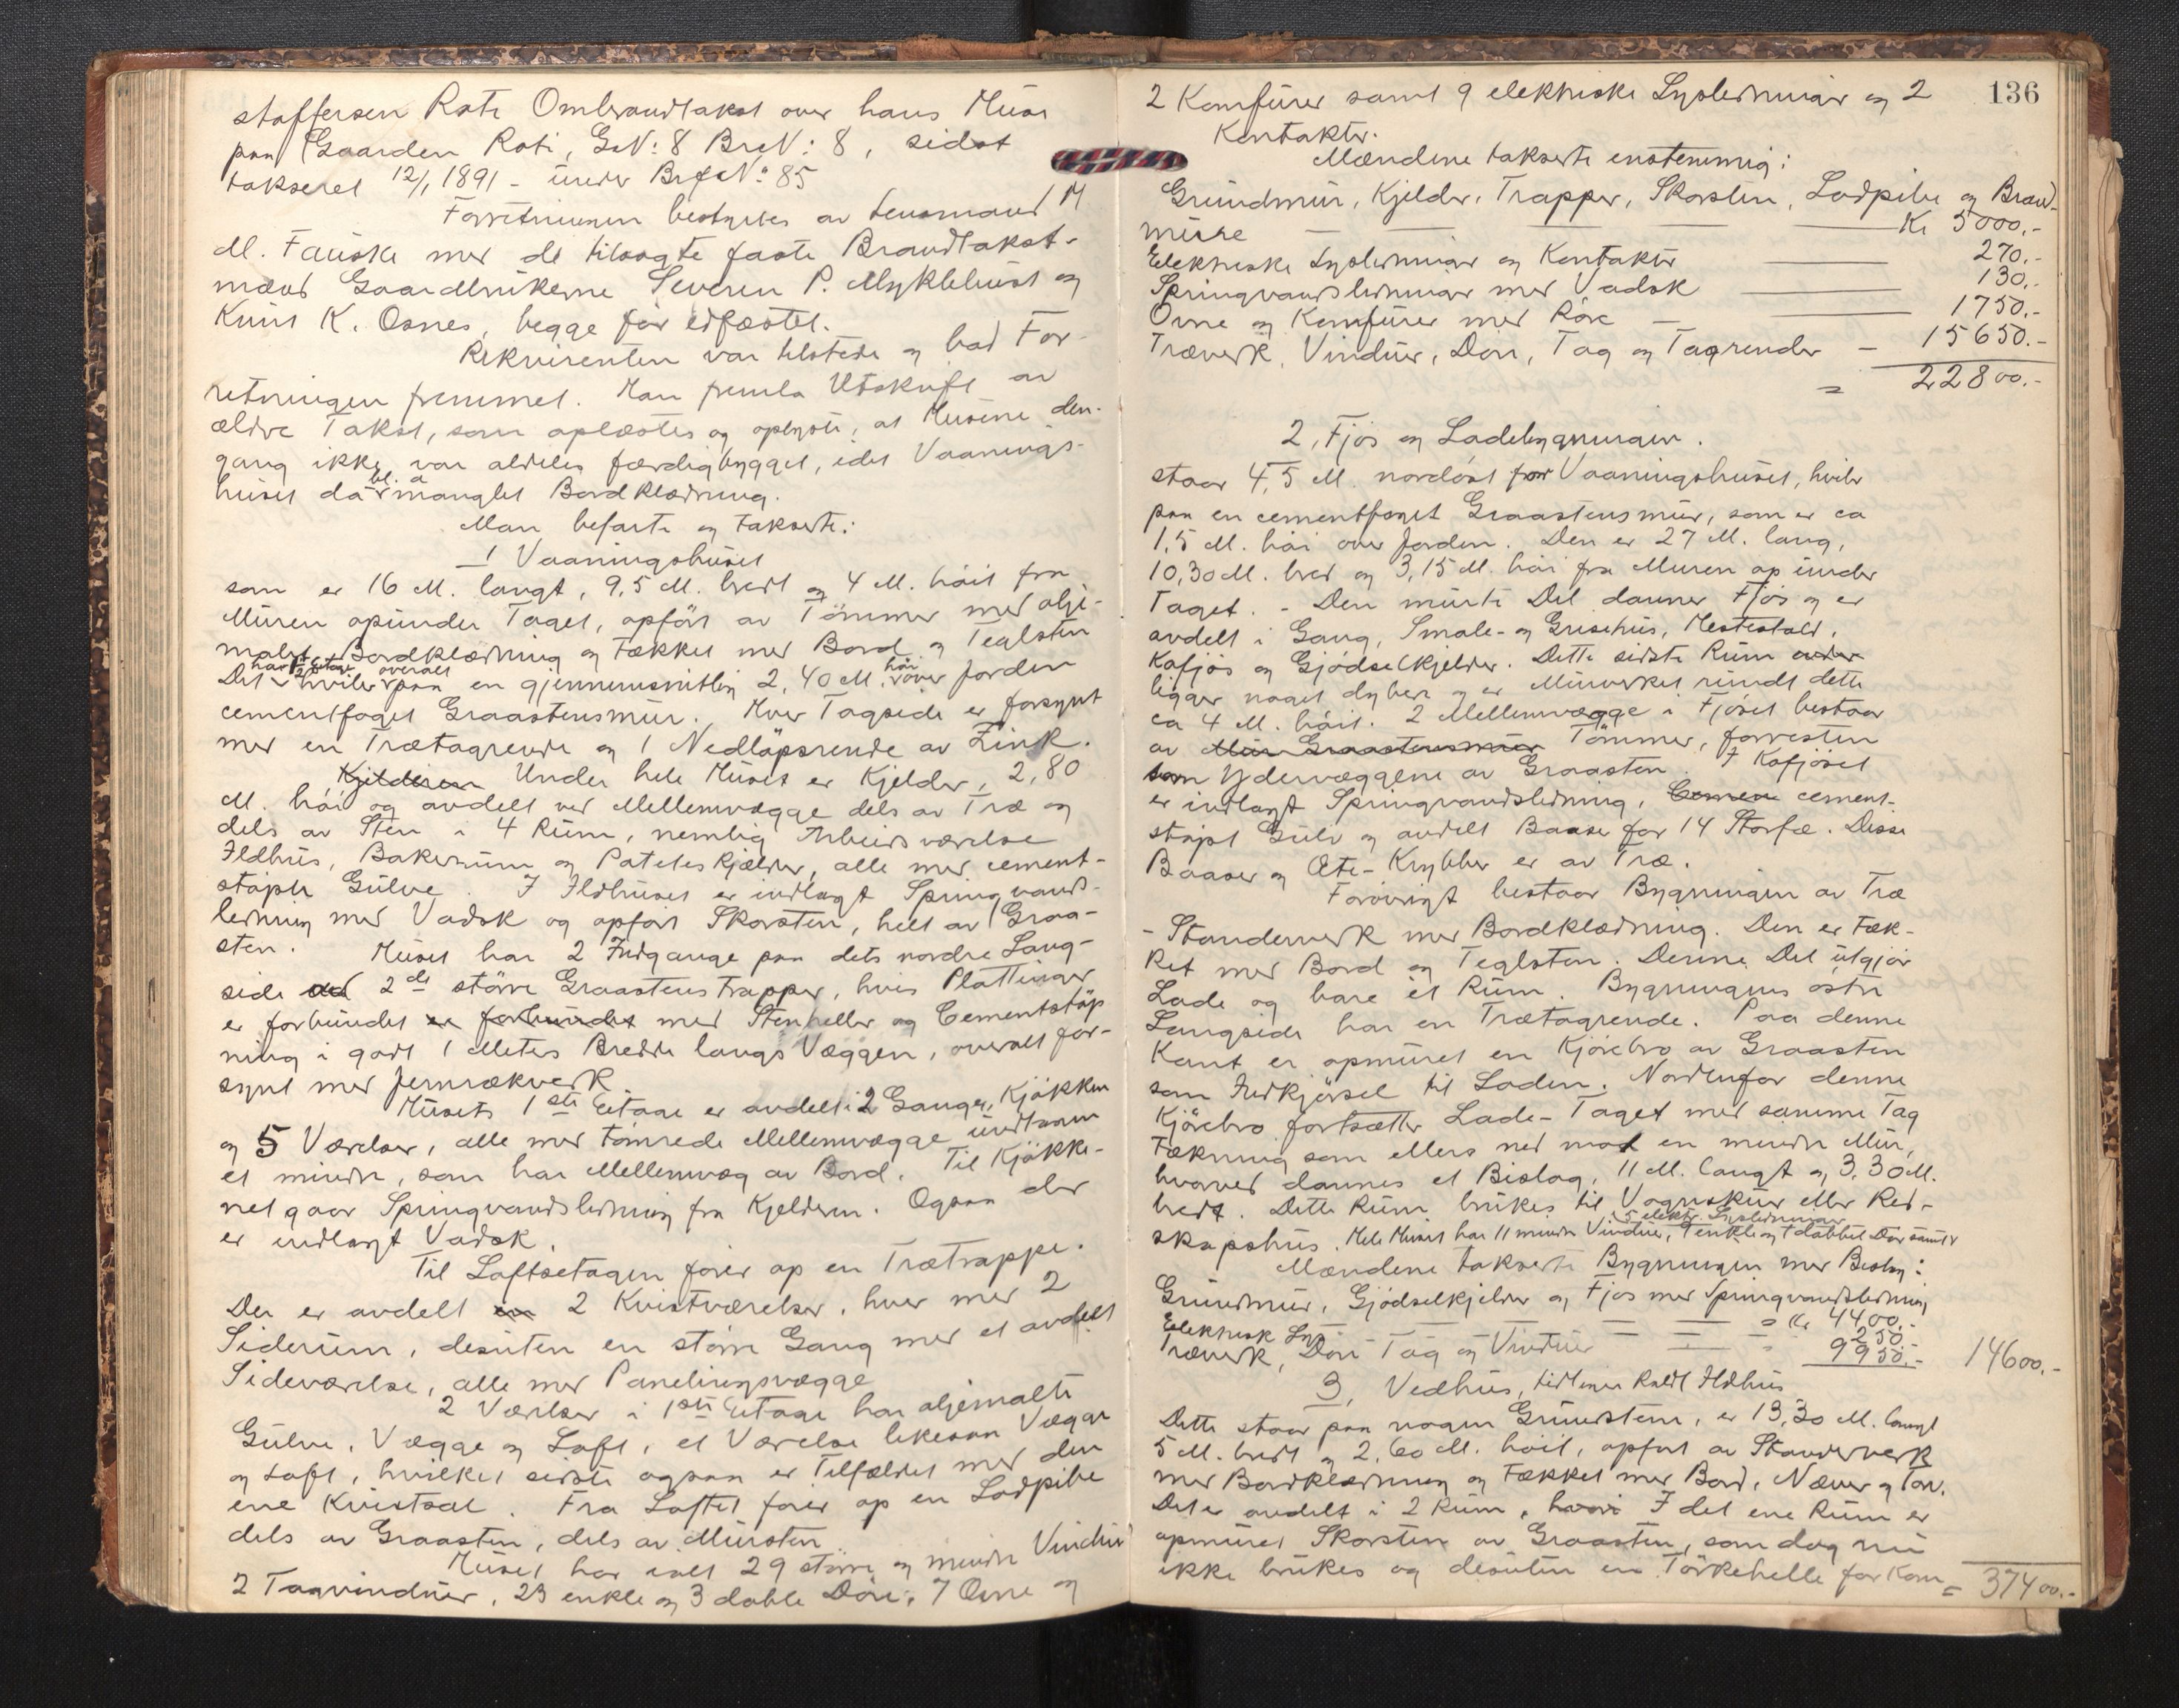 stoffersen Roti Ombrandtakst over hans Huse
paa Gaarden Roti, G.N: 8 Br.N: 8, sidst
takseret 12/1 1891 - under Brf.N: 85
Forretningen bestyres av Lensmand M
M. Fauske med de tilsagte faste Brandtakst-
mænd Gaardbrukerne Severin P. Myklebust og
Knut K. Osnes, begge før edfæstet.
Rekvirenten var tilstede og bad For-
retningen fremmet. Han fremla Utskrift av
ældre Takst, som oplæstes og oplyste, at Husene den-
gang ikke var aldeles færdigbygget, idet Vaanings-
huset da bl. a manglet Bordklædning.
Man befarte og takserte:
1 Vaaningshuset
som er 16 M. langt, 9,5 M. bredt og 4 M. höit fra
Muren opunder Taget, opfört av Tömmer med olje-
malet Bordklædning og tækket med Bord og Teglsten
Det har 1½ Etage hviler overalt paa en gjennemsnitlig 2,40 M. höi over Jorden
cementfuget Graastensmur. Hver Tagside er forsynt
med en Trætagrende og 1 Nedlöpsrende av Zink.
Kjelderen Under hele Huset er Kjelder, 2,80
M. höi og avdelt ved Mellemvægge dels av Træ og
dels av Sten i 4 Rum, nemlig Arbeidsværelse
Ildhus, Bakerum og Poteteskjælder, alle med cement-
støpte Gulve. I Ildhuset er indlagt Springvands-
ledning med Vadsk og opført Skorsten, helt av Graa-
sten. Huset har 2 Indgange paa dets nordre Lang-
side ad 2de större Graastens trapper, hvis Plattinger
er forbundet er forbundet med Stenheller og Cementstöp
ning i godt 1 Meters Bredde langs Væggen, overalt for-
synt med Jernrækverk.
Husets 1ste Etage er avdelt i 2 Gange, Kjökken
og 5 Værelser, alle med tömrede Mellemvægge undtagen
et mindre, som har Mellemvæg av Bord. Til Kjökke-
net gaar Springvandsledning fra Kjelderen. Ogsaa der
er indlagt Vadsk.
Til Loftsetagen förer op en Trætrappe.
Den er avdelt i 2 Kvistværelser, hver med 2
Siderum, desuten en större Gang med et avdelt
Sideværelse, alle med Panelingsvægge
2 Værelser i 1ste Etage har oljemalte
Gulve, Vægge og Loft, et Værelse likesaa Vægge
og Loft, hvilket sidste ogsaa er Tilfældet med den
ene Kvistsal. Fra Loftet förer op en Lodpibe
dels av Graasten, dels av Mursten
Huset har ialt 29 större og mindre Vinduer
2 Tagvinduer, 23 enkle og 3 doble Döre, 7 Ovne og
136
2 Komfurer samt 9 elektriske Lysledninger og 2
Kontakter.
Mændene takserte enstemmig:
Grundmur, Kjelder, Trapper, Skorsten, Lodpibe og Brand-
mure Kr 5000.-
Elektriske Lysledninger og Kontakter 270.-
Springvandsledninger med Vadsk 130.-
Ovne og Komfurer med Rör 1750.-
Træverk, Vinduer, Döre, Tag og Tagrender 15650.-
= 22800.-
2, Fjös og Ladebygningen.
staar 4,5 M. nordöst for Vaaningshuset, hviler
paa en cementfuget Graastensmur, som er ca
1,5 M. höi over Jorden. Den er 27 M. lang,
10,30 M. bred og 3,15 M. höi fra Muren op under
Taget. - Den murte Del danner Fjös og er
avdelt i Gang, Smale- og Grisehus, Hestestald,
Kofjös og Gjödselkjelder. Dette sidste Rum
ligger noget dybere og er Murverket rundt dette
ca 4 M. höit. 2 Mellemvægge i Fjöset bestaar
av Mur Graastensmur Tömmer, forresten
som Ydervæggene av Graasten. I Kofjöset
er indlagt Springvandsledning, Cemen cement-
stöpt Gulv og avdelt Baase for 14 Storfæ. Disse
Baaser og Æte-Krybber er av Træ.
Forövrigt bestaar Bygningen av Træ
- Standerverk med Bordklædning. Den er tæk-
ket med Bord og Teglsten. Denne Del utgjör
Lade og bare et Rum. Bygningens östre
Langside har en Trætagrende. Paa denne
Kant er opmuret en Kjörebro av Graasten
som Indkjörsel til Laden. Nordenfor denne
Kjörebro fortsætter Lade-Taget med samme Tag
tækning som ellers ned mod en mindre Mur,
hvorved dannes et Bislag, 11 M. langt og 3,30 M.
bredt. Dette Rum brukes til Vognskur eller Red-
5 elektr. Lysledninger
skapshus. Hele Huset har 11 mindre Vinduer, 7 enkle og 1 dobbel Dör samt
Mændene takserte Bygningen med Bislag:
Grundmur, Gjödselkjelder og Fjös med Springvandsledning
= Kr 4400.-
Elektrisk Lys 250.-
Træverk, Döre Tag og Vinduer 9950.- 14600.-
3, Vedhus, tidligere kaldt Ildhus
Dette staar paa nogen Grundstene, er 13,30 M. langt
5 M. bredt og 2,60 M. höit, opført av Standerverk
med Bordklædning og tækket med Bord, Næver og Torv.
Det er avdelt i 2 Rum, hvori I det ene Rum er
opmuret Skorsten av Graasten, som dog nu
ikke brukes og desuten en Törkehelle for Korn
= 37400.-